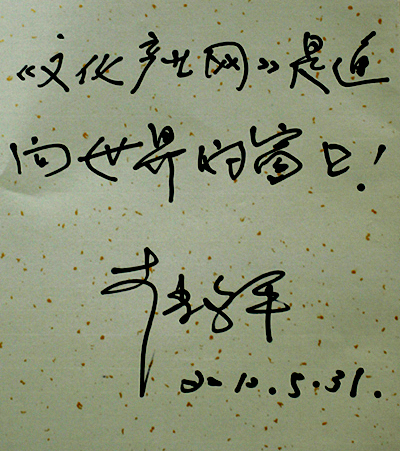 《文化产业网》是通
向世界的窗口!
2010.5.31.